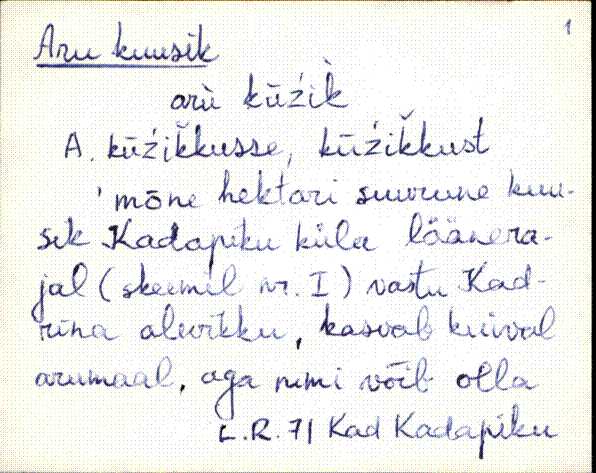 1
Aru kuusik
arù kūźìk
A. kūźik̆kusse, kūźik̆kust
'mõne hektari suurune kuu-
sik Kadapiku küla läänera-
jal (skeemil nr. I) vastu Kad-
rina alevikku, kasvab kuival
arumaal, aga nimi võib olla
L.R. 71 Kad Kadapiku